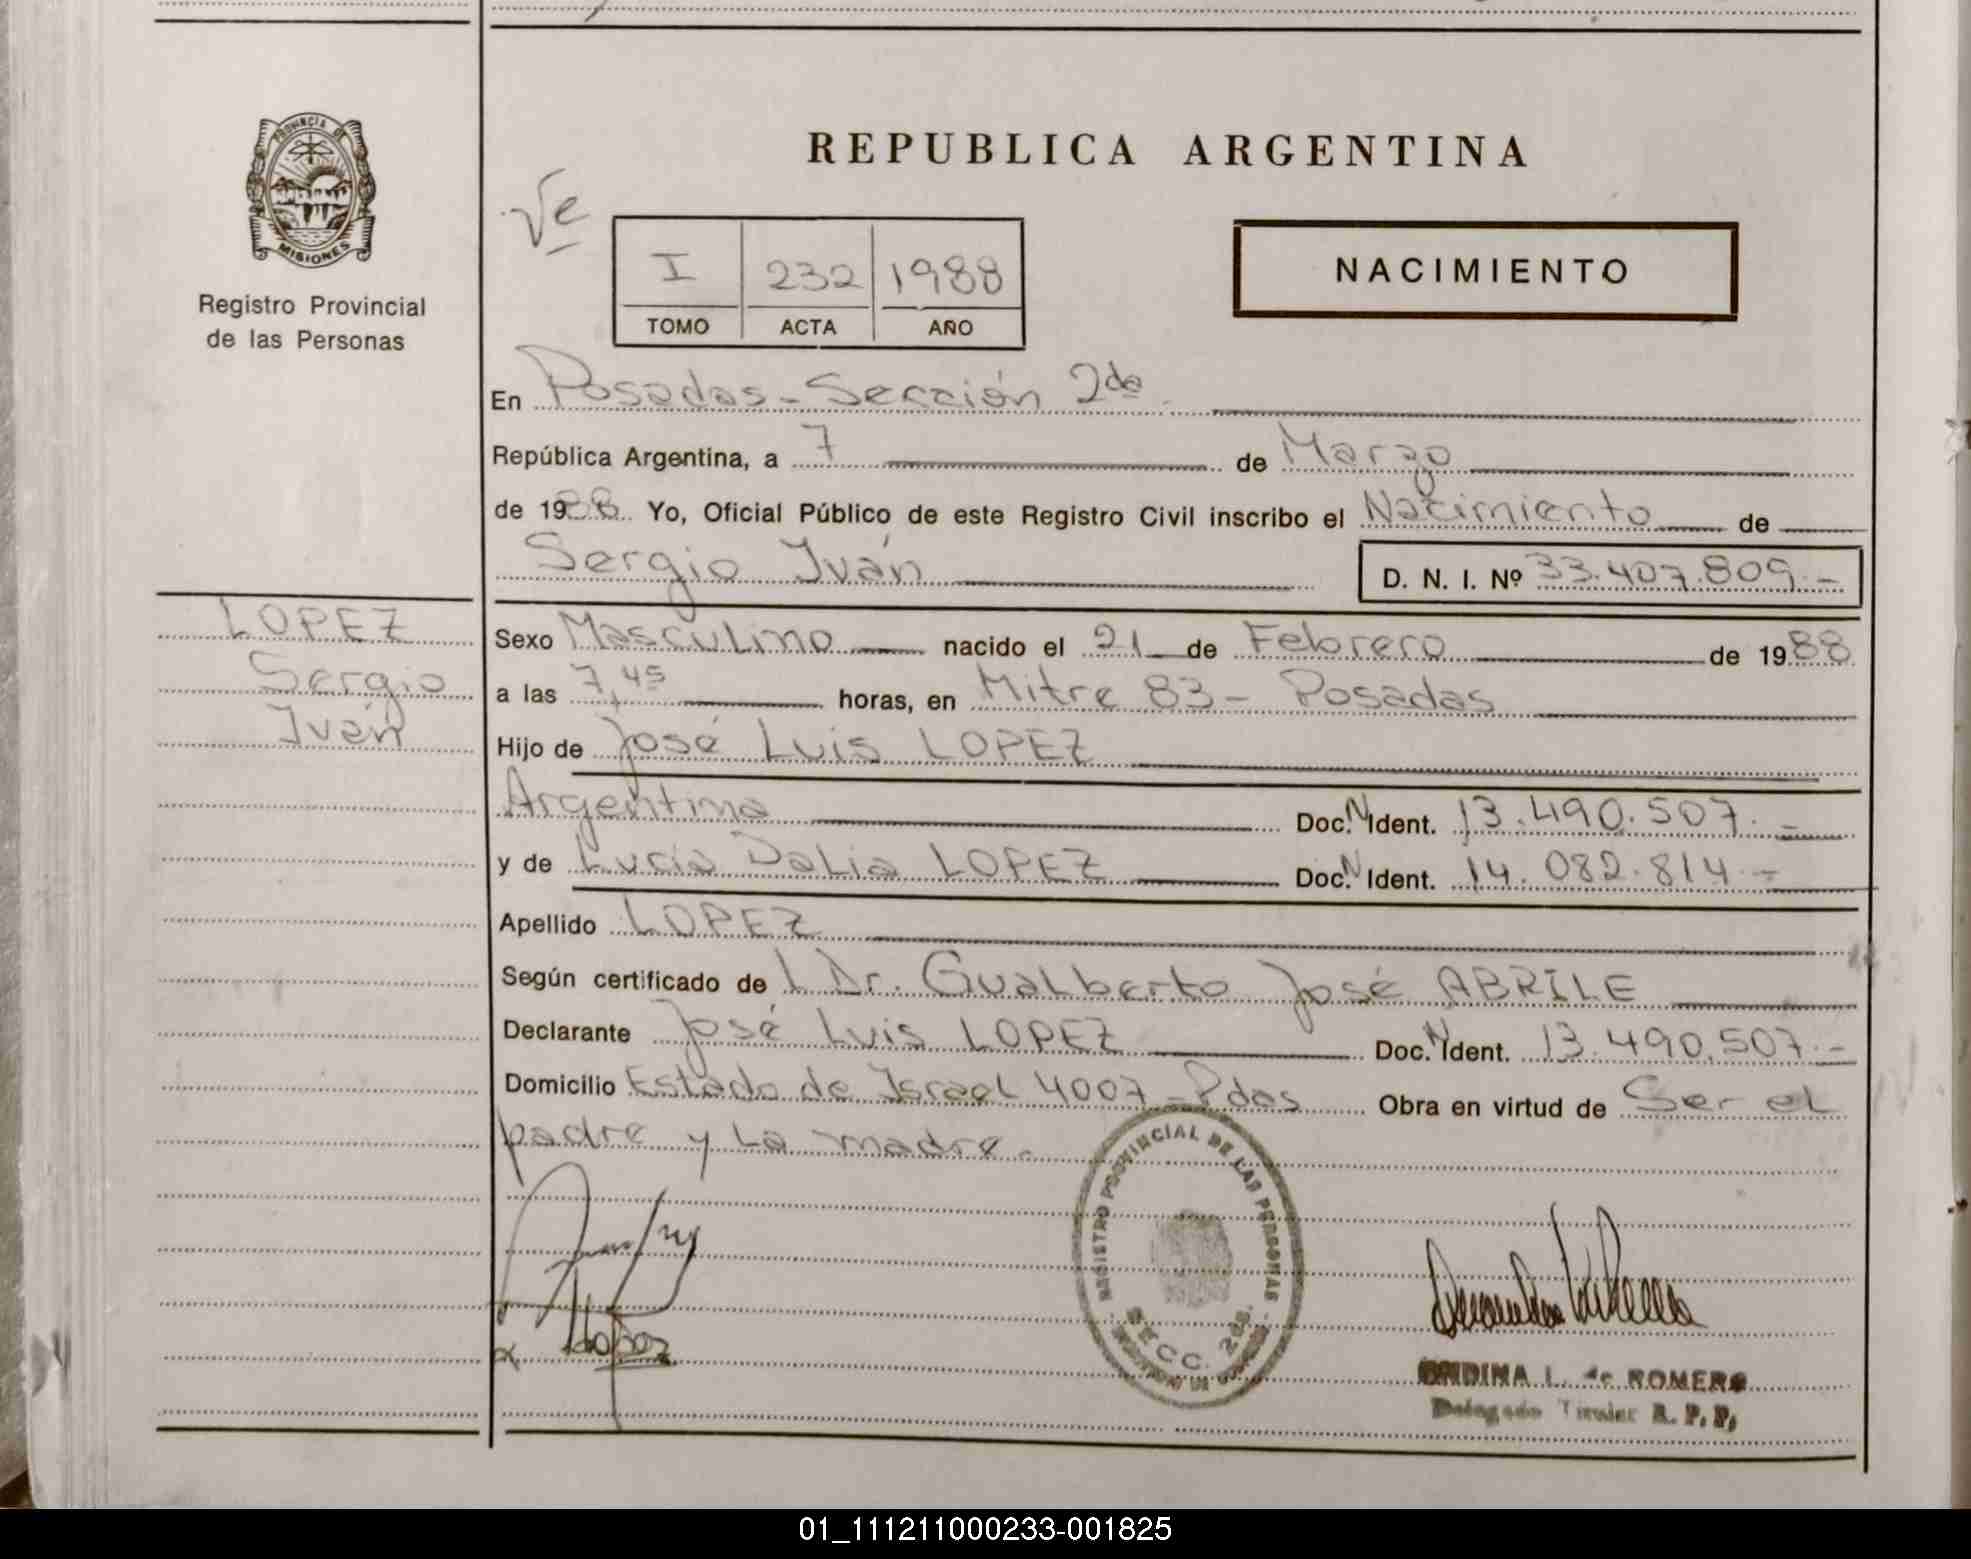 PROVINCIA DE
MISIONES
Registro Provincial
de las Personas
REPUBLICA ARGENTINA
I 232 1988
TOMO ACTA AÑO
NACIMIENTO
En Posadas - Sección 2da
República Argentina, a 7 de Marzo
de 1988 Yo, Oficial Público de este Registro Civil inscribo el Nacimiento de
Sergio Iván D. N. I. Nº 33.407.809.-
LOPEZ
Sergio
Iván
Sexo Masculino nacido el 21 de Febrero de 1988
a las 7,45 horas, en Mitre 83 - Posadas
Hijo de José Luis LOPEZ
Argentina Doc. N Ident. 13.490.507.-
y de Lucía Dalia LOPEZ Doc. N Ident. 14.082.814.-
Apellido LOPEZ
Según certificado de l Dr. Gualberto José ABRILE
Declarante José Luis LOPEZ Doc. N Ident. 13.490.507.-
Domicilio Estado de Israel 4007 - Pdas Obra en virtud de Ser el
padre y la madre.
REGISTRO PROVINCIAL DE LAS PERSONAS
SECC. 2da.
ONDINA L. de ROMERO
Delegado Titular R. P. P.
01_111211000233-001825